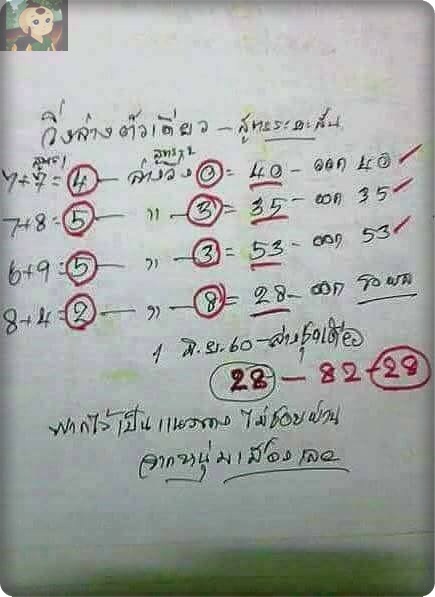 วิ่งล่างตัวเดียว - สูตรระยะสั้น
สูตร 1 สูตร 2
7+7 = 4 — ล่างวิ่ง 0 = 40 - ออก 40 ✓
7+8 = 5 — " — 3 = 35 - ออก 35 ✓
6+9 = 5 — " — 3 = 53 - ออก 53 ✓
8+4 = 2 — " — 8 = 28 - ออก รอผล
1 มิ.ย. 60 - ล่างชุดเดียว
28 - 82 - 28
ฝากไว้เป็นแนวทาง ไม่ชอบผ่าน
จากหนุ่มเมืองเลย